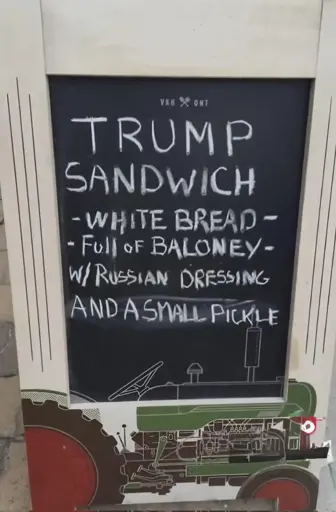 VAN ONT
TRUMP
SANDWICH
- WHITE BREAD -
- FULL OF BALONEY -
W/ RUSSIAN DRESSING
AND A SMALL PICKLE